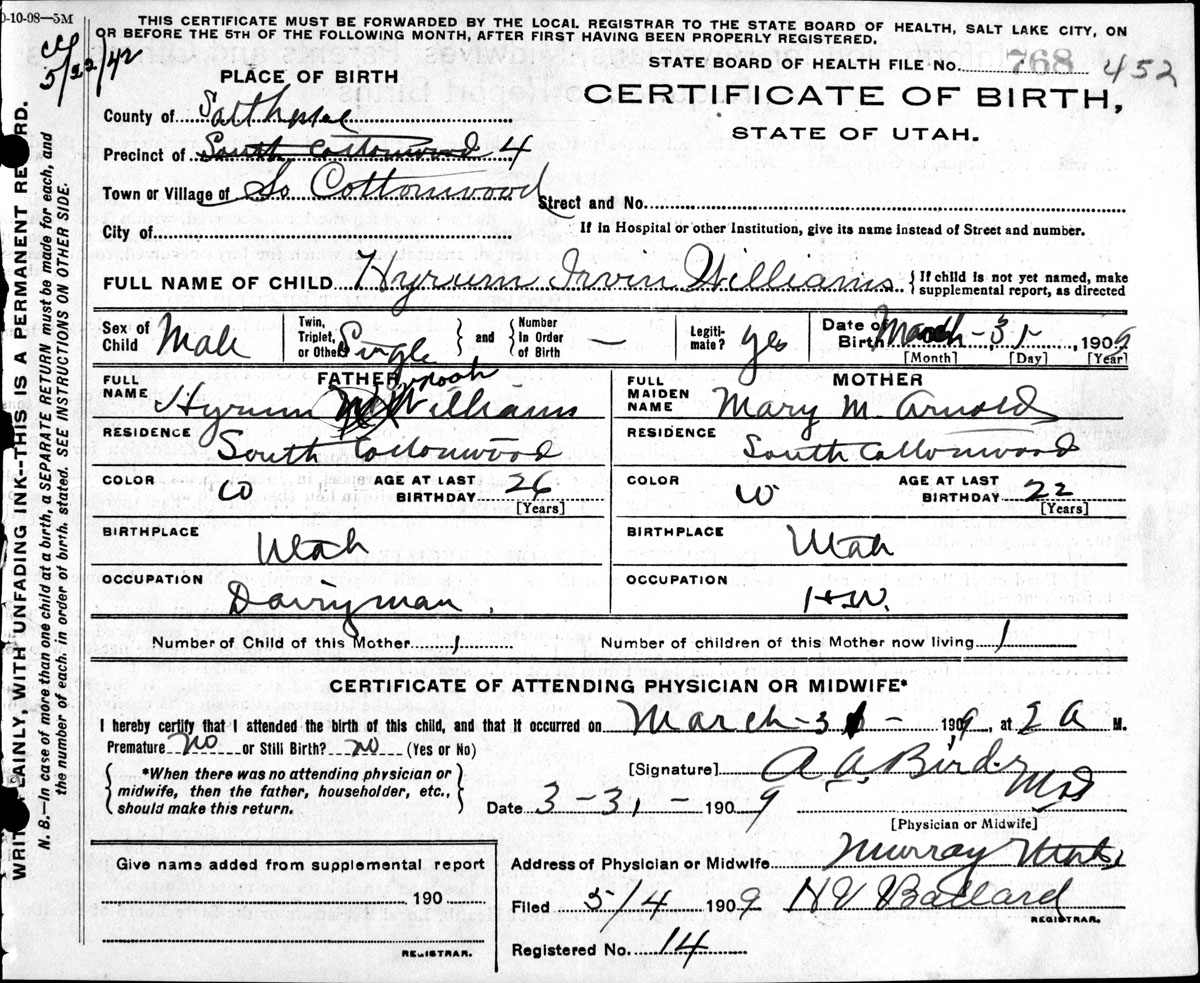 0-10-08—5M
THIS CERTIFICATE MUST BE FORWARDED BY THE LOCAL REGISTRAR TO THE STATE BOARD OF HEALTH, SALT LAKE CITY, ON
OR BEFORE THE 5TH OF THE FOLLOWING MONTH, AFTER FIRST HAVING BEEN PROPERLY REGISTERED.
5/22/42
STATE BOARD OF HEALTH FILE No. 768 452
PLACE OF BIRTH
CERTIFICATE OF BIRTH,
STATE OF UTAH.
County of Salt Lake
Precinct of South Cottonwood 4
Town or Village of So Cottonwood
Street and No.
City of
If in Hospital or other Institution, give its name instead of Street and number.
FULL NAME OF CHILD Hyrum Irvin Williams { If child is not yet named, make
supplemental report, as directed
Sex of Child Male
Twin, Triplet, or Other Single } and { Number In Order of Birth —
Legitimate? yes
Date of Birth March - 31 - 1909
[Month] [Day] [Year]
FATHER
FULL NAME Hyrum Noah Williams
RESIDENCE South Cottonwood
COLOR W AGE AT LAST BIRTHDAY 26
[Years]
BIRTHPLACE Utah
OCCUPATION Dairyman
MOTHER
FULL MAIDEN NAME Mary M. Arnold
RESIDENCE South Cottonwood
COLOR W AGE AT LAST BIRTHDAY 22
[Years]
BIRTHPLACE Utah
OCCUPATION H.W.
Number of Child of this Mother 1 Number of children of this Mother now living 1
CERTIFICATE OF ATTENDING PHYSICIAN OR MIDWIFE*
I hereby certify that I attended the birth of this child, and that it occurred on March - 31 - 1909, at 2 A M.
Premature No or Still Birth? no (Yes or No)
{ *When there was no attending physician or
midwife, then the father, householder, etc.,
should make this return. }
[Signature] A. A. Bird MD
Date 3-31- 1909
[Physician or Midwife]
Give name added from supplemental report
190
REGISTRAR.
Address of Physician or Midwife Murray Utah
Filed 5/4 1909 HV Ballard
REGISTRAR.
Registered No. 14
WRITE PLAINLY, WITH UNFADING INK--THIS IS A PERMANENT RECORD.
N. B.—In case of more than one child at a birth, a SEPARATE RETURN must be made for each, and
the number of each, in order of birth, stated. SEE INSTRUCTIONS ON OTHER SIDE.